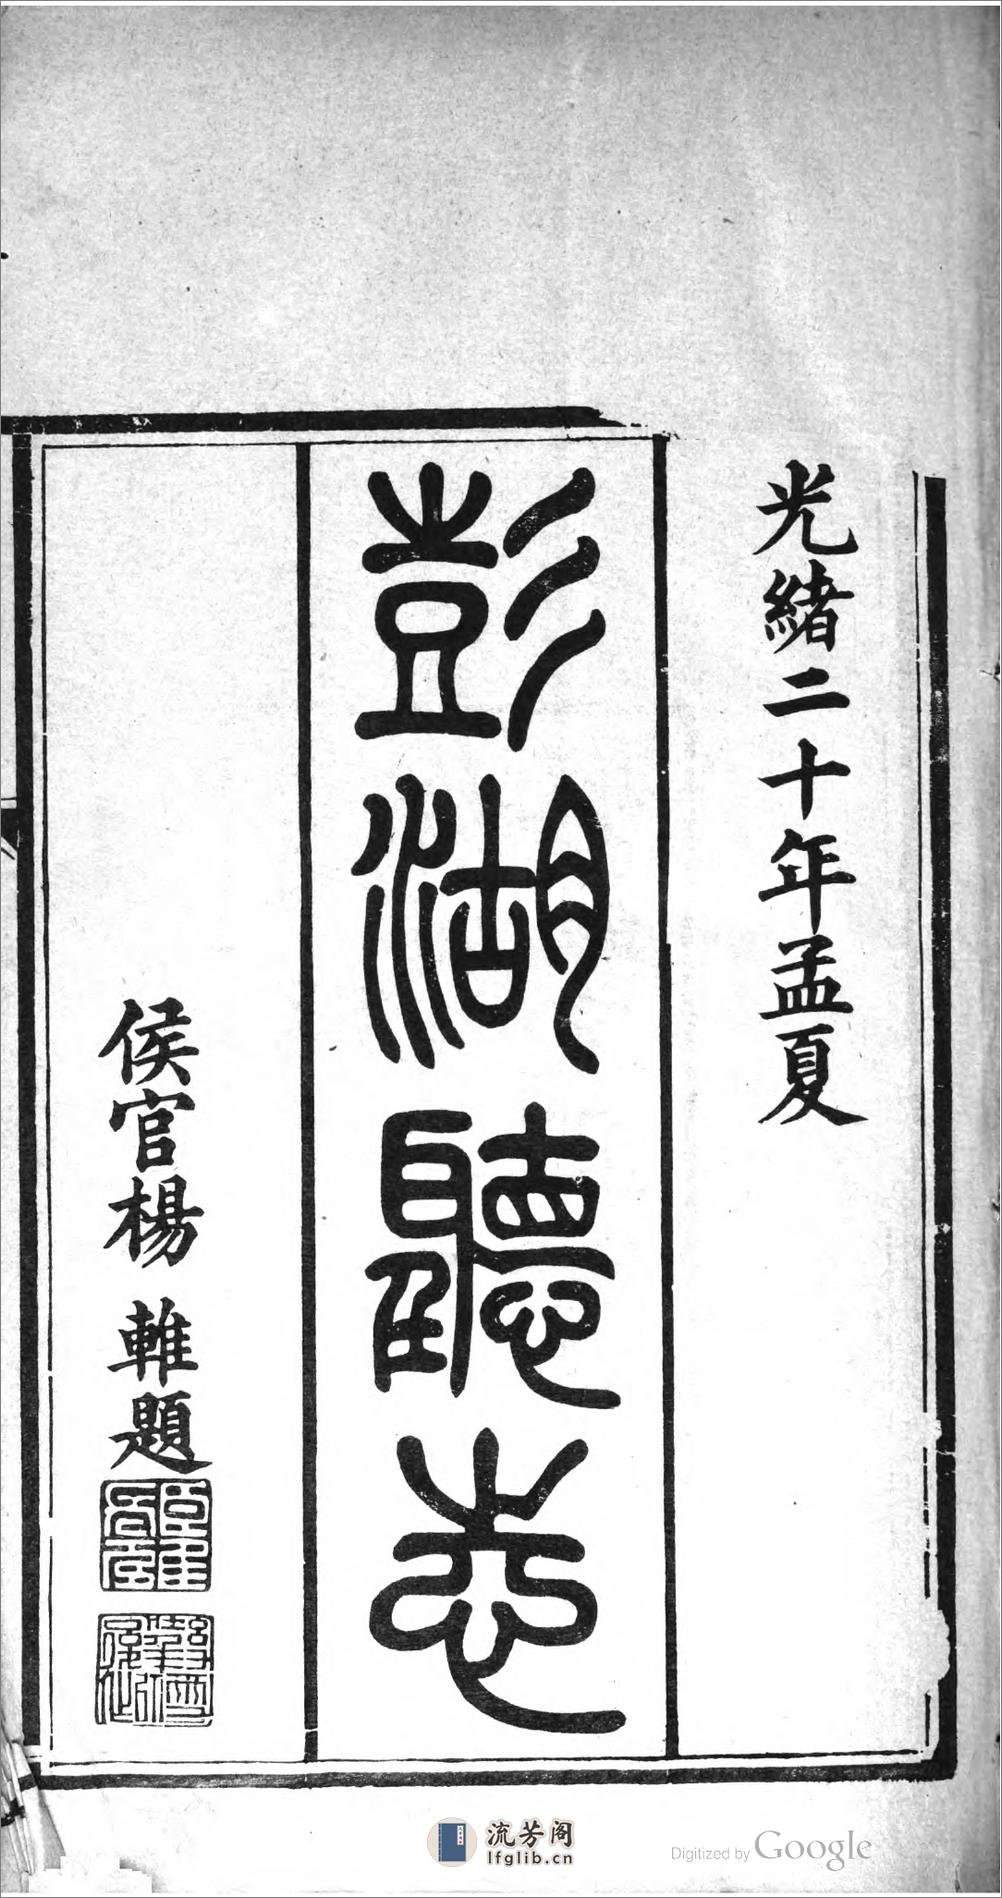 光緒二十年孟夏
彭湖聽志
侯官楊 雗題
流芳阁
lfglib.cn
Digitized by Google